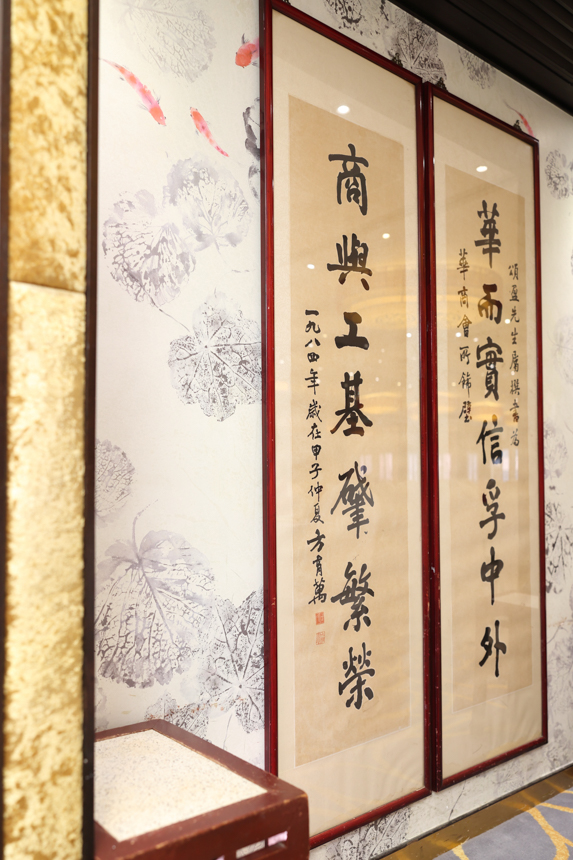 頌盈先生屬撰書為
華而實信孚中外
華商會所飾壁
商與工基肇繁榮
一九八四年歲在甲子仲夏方育萬